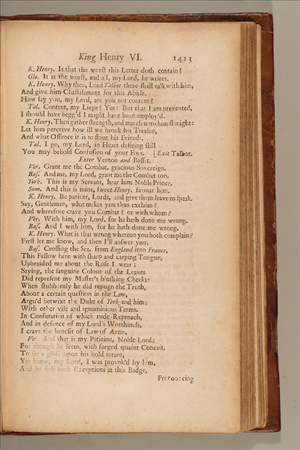 King Henry VI. 1423
K. Henry. Is that the worst this Letter doth contain?
Glo. It is the worst, and all, my Lord, he writes.
K. Henry. Why then, Lord Talbot there shall talk with him,
And give him Chastisement for this Abuse.
How say you, my Lord, are you not content?
Tal. Content, my Liege? Yes: But that I am prevented,
I should have begg'd I might have been employ'd.
K. Henry. Then gather strength, and march unto him straight:
Let him perceive how ill we brook his Treason,
And what Offence it is to flout his Friends.
Tal. I go, my Lord, in Heart desiring still
You may behold Confusion of your Foes. [Exit Talbot.
Enter Vernon and Basset.
Ver. Grant me the Combat, gracious Sovereign.
Bas. And me, my Lord, grant me the Combat too.
York. This is my Servant, hear him Noble Prince.
Som. And this is mine, sweet Henry, favour him.
K. Henry. Be patient, Lords, and give them leave to speak.
Say, Gentlemen, what makes you thus exclaim?
And wherefore crave you Combat? or with whom?
Ver. With him, my Lord, for he hath done me wrong.
Bas. And I with him, for he hath done me wrong.
K. Henry. What is that wrong whereon you both complain?
First let me know, and then I'll answer you.
Bas. Crossing the Sea, from England into France,
This Fellow here with sharp and carping Tongue,
Upbraided me about the Rose I wear;
Saying, the sanguine Colour of the Leaves
Did represent my Master's blushing Cheeks:
When stubbornly he did repugn the Truth,
About a certain question in the Law,
Argu'd betwixt the Duke of York and him;
With other vile and ignominious Terms.
In Confutation of which rude Reproach,
And in defence of my Lord's Worthiness,
I crave the benefit of Law of Arms.
Ver. And that is my Petition, Noble Lord;
For though he seem, with forged quaint Conceit,
To set a gloss upon his bold intent,
Yet know, my Lord, I was provok'd by him,
And he first took Exceptions at this Badge,
Pronouncing